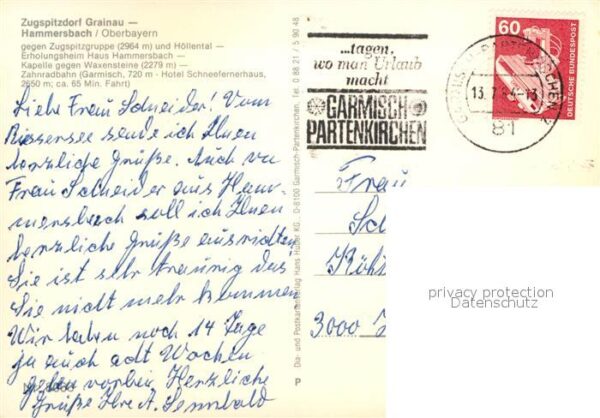 Zugspitzdorf Grainau —
Hammersbach / Oberbayern
gegen Zugspitzgruppe (2964 m) und Höllental —
Erholungsheim Haus Hammersbach —
Kapelle gegen Waxensteine (2279 m) —
Zahnradbahn (Garmisch, 720 m · Hotel Schneefernerhaus,
2650 m; ca. 65 Min. Fahrt)
Liebe Frau Schneider! Vom
Riessersee sende ich Ihnen
herzliche Grüße. Auch von
Frau Schneider aus Ham-
mersbach soll ich Ihnen
herzliche Grüße ausrichten
Sie ist sehr traurig das
Sie nicht mehr kommen
Wir haben noch 14 Tage
ja auch acht Wochen
gehen vorbei Herzliche
Grüße Ihre A.
Dia- und Postkartenverlag Hans Huber KG. D-8100 Garmisch-Partenkirchen, Tel. 0 88 21 / 5 90 48
P
...tagen,
wo man Urlaub
macht
GARMISCH-
PARTENKIRCHEN
GARMISCH-PARTENKIRCHEN 2
13.7.84-13
81
60
DEUTSCHE BUNDESPOST
Frau
Sc
Röh
3000
privacy protection
Datenschutz